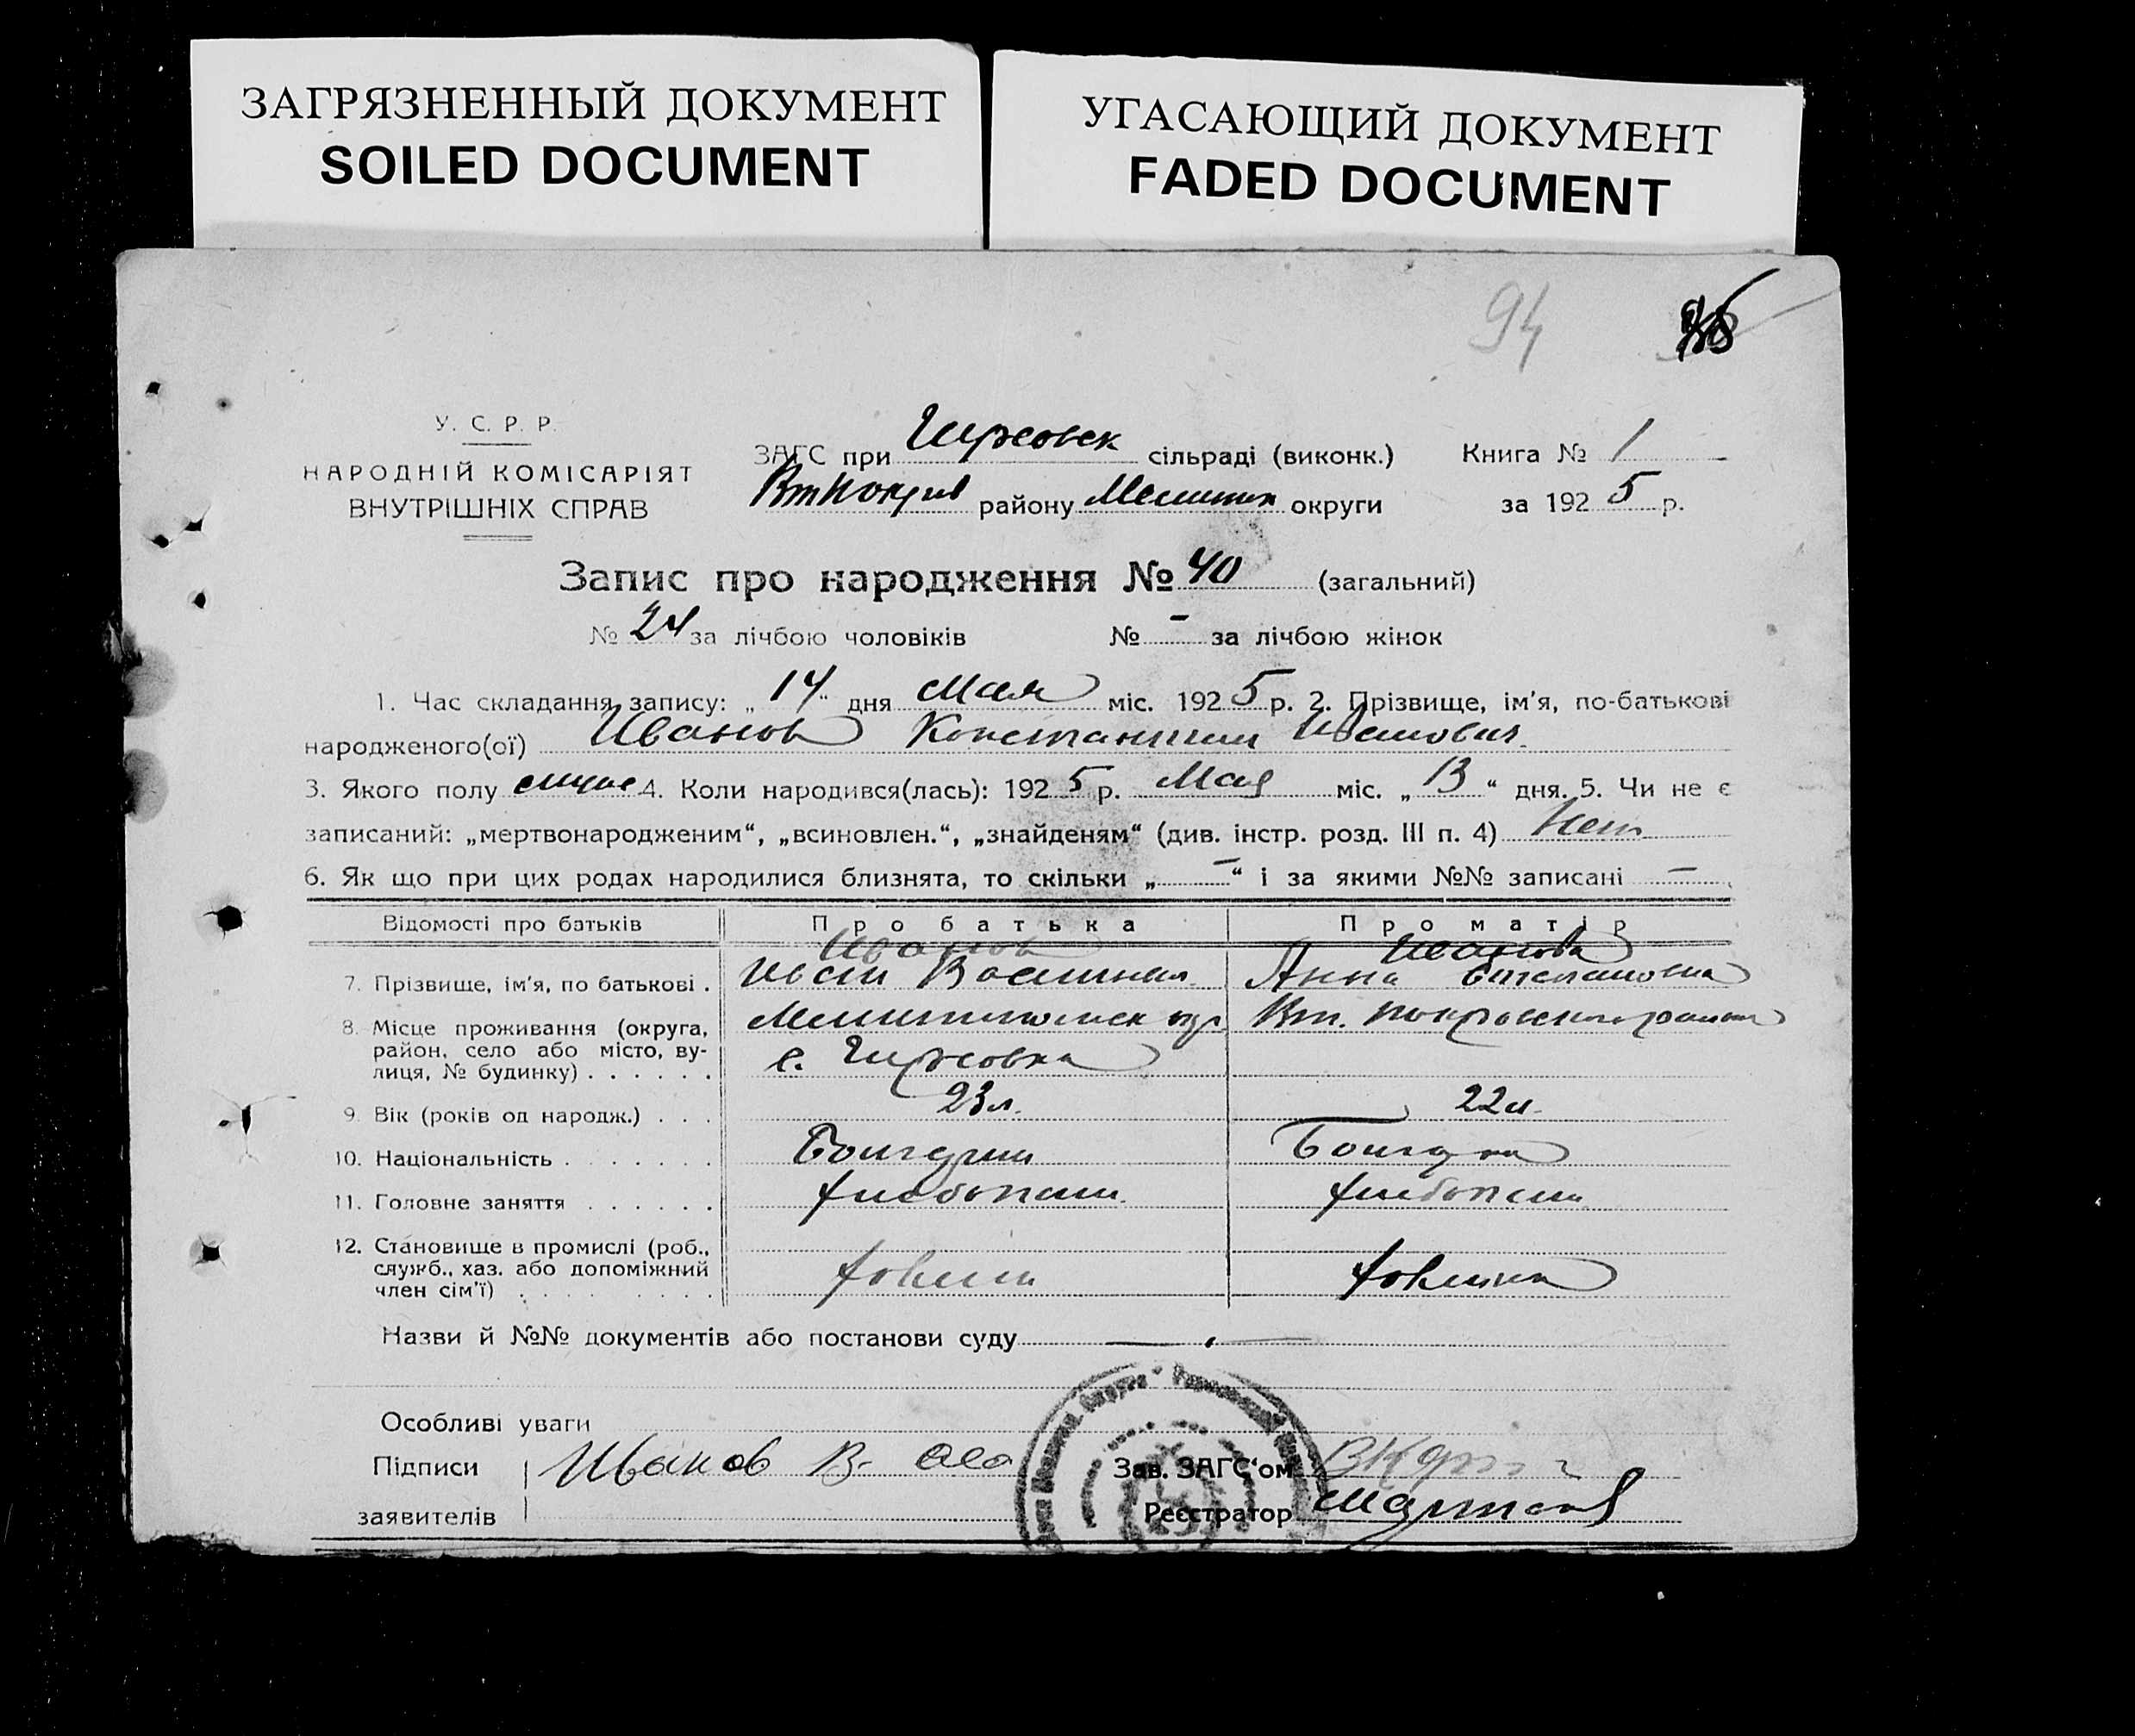 ЗАГРЯЗНЕННЫЙ ДОКУМЕНТ
SOILED DOCUMENT
УГАСАЮЩИЙ ДОКУМЕНТ
FADED DOCUMENT
94
У. С. Р. Р.
НАРОДНІЙ КОМІСАРІЯТ
ВНУТРІШНІХ СПРАВ
ЗАГС при Гирсовск сільраді (виконк.) Книга № 1
району Мелитоп округи за 1925 р.
Запис про народження № 40 (загальний)
№ 24 за лічбою чоловіків № - за лічбою жінок
1. Час складання запису: „14" дня Мая міс. 1925 р. 2. Прізвище, ім'я, по-батькові
народженого(ої) Иванов Константин Иванович
3. Якого полу 4. Коли народився(лась): 1925 р. Мая міс. „13" дня. 5. Чи не є
записаний: „мертвонародженим", „всиновлен.", „знайденям" (див. інстр. розд. III п. 4) Нет
6. Як що при цих родах народилися близнята, то скільки „—" і за якими №№ записані —
Відомості про батьків Про батька Про матір
Иванов Иванова
7. Прізвище, ім'я, по батькові . Иван Васильев. Анна Степановна
8. Місце проживання (округа, Мелитопольск окр. Вт. Покровского района
район, село або місто, ву- с. Гирсовка
лиця, № будинку) . . . . . .
9. Вік (років од народж.) . . . 23 л. 22 л.
10. Національність . . . . . . . Болгарин Болгарка
11. Головне заняття . . . . . . хлебопаш. хлебопаш.
12. Становище в промислі (роб.,
служб., хаз. або допоміжний хозяин хозяйка
член сім'ї) . . . . . . . . .
Назви й №№ документів або постанови суду
Особливі уваги
Підписи Иванов В.
Зав. ЗАГС'ом
заявителів Реєстратор